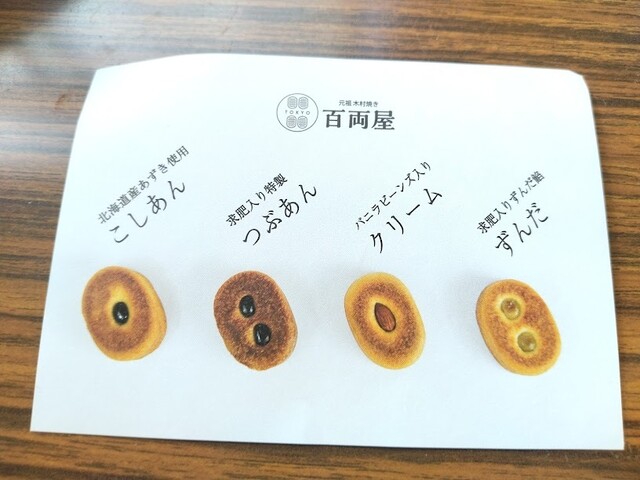 元祖 木村焼き
TOKYO
百両屋
北海道産あずき使用
こしあん
求肥入り特製
つぶあん
バニラビーンズ入り
クリーム
求肥入りずんだ餡
ずんだ